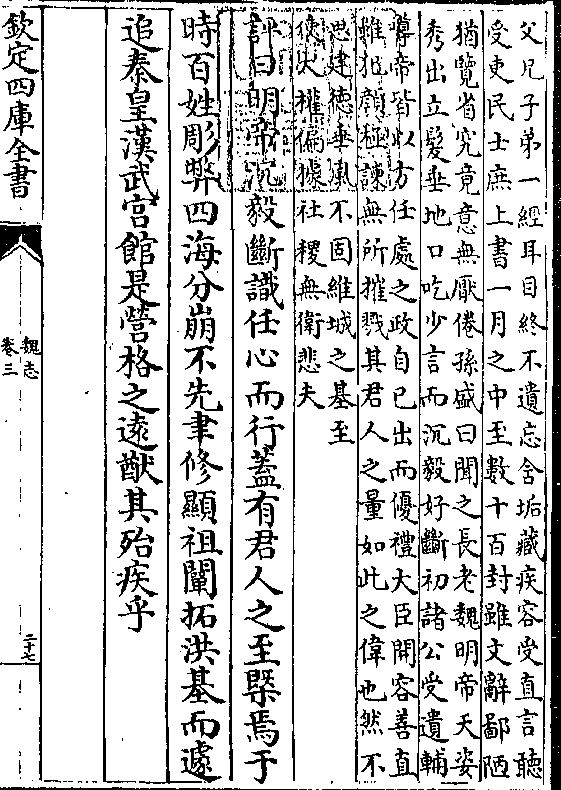 父兄子弟一經耳目終不遺忘含垢藏疾容受直言聽
受吏民士庶上書一月之中至數十百封雖文辭鄙陋
猶覽省究竟意無厭倦孫盛曰聞之長老魏明帝天姿
秀出立髮垂地口吃少言而沉毅好斷初諸公受遺輔
導帝皆以方任處之政自己出而優禮大臣開容善直
雖犯顏極諫無所摧戮其君人之量如此之偉也然不
思建德垂風不固維城之基至
使大權偏據社稷無衛悲夫
評曰明帝沉毅斷識任心而行蓋有君人之至槩焉于
時百姓彫弊四海分崩不先聿修顯祖闡拓洪基而遽
追秦皇漢武宮館是營格之遠猷其殆疾乎
欽定四庫全書
魏志
卷三
二十七